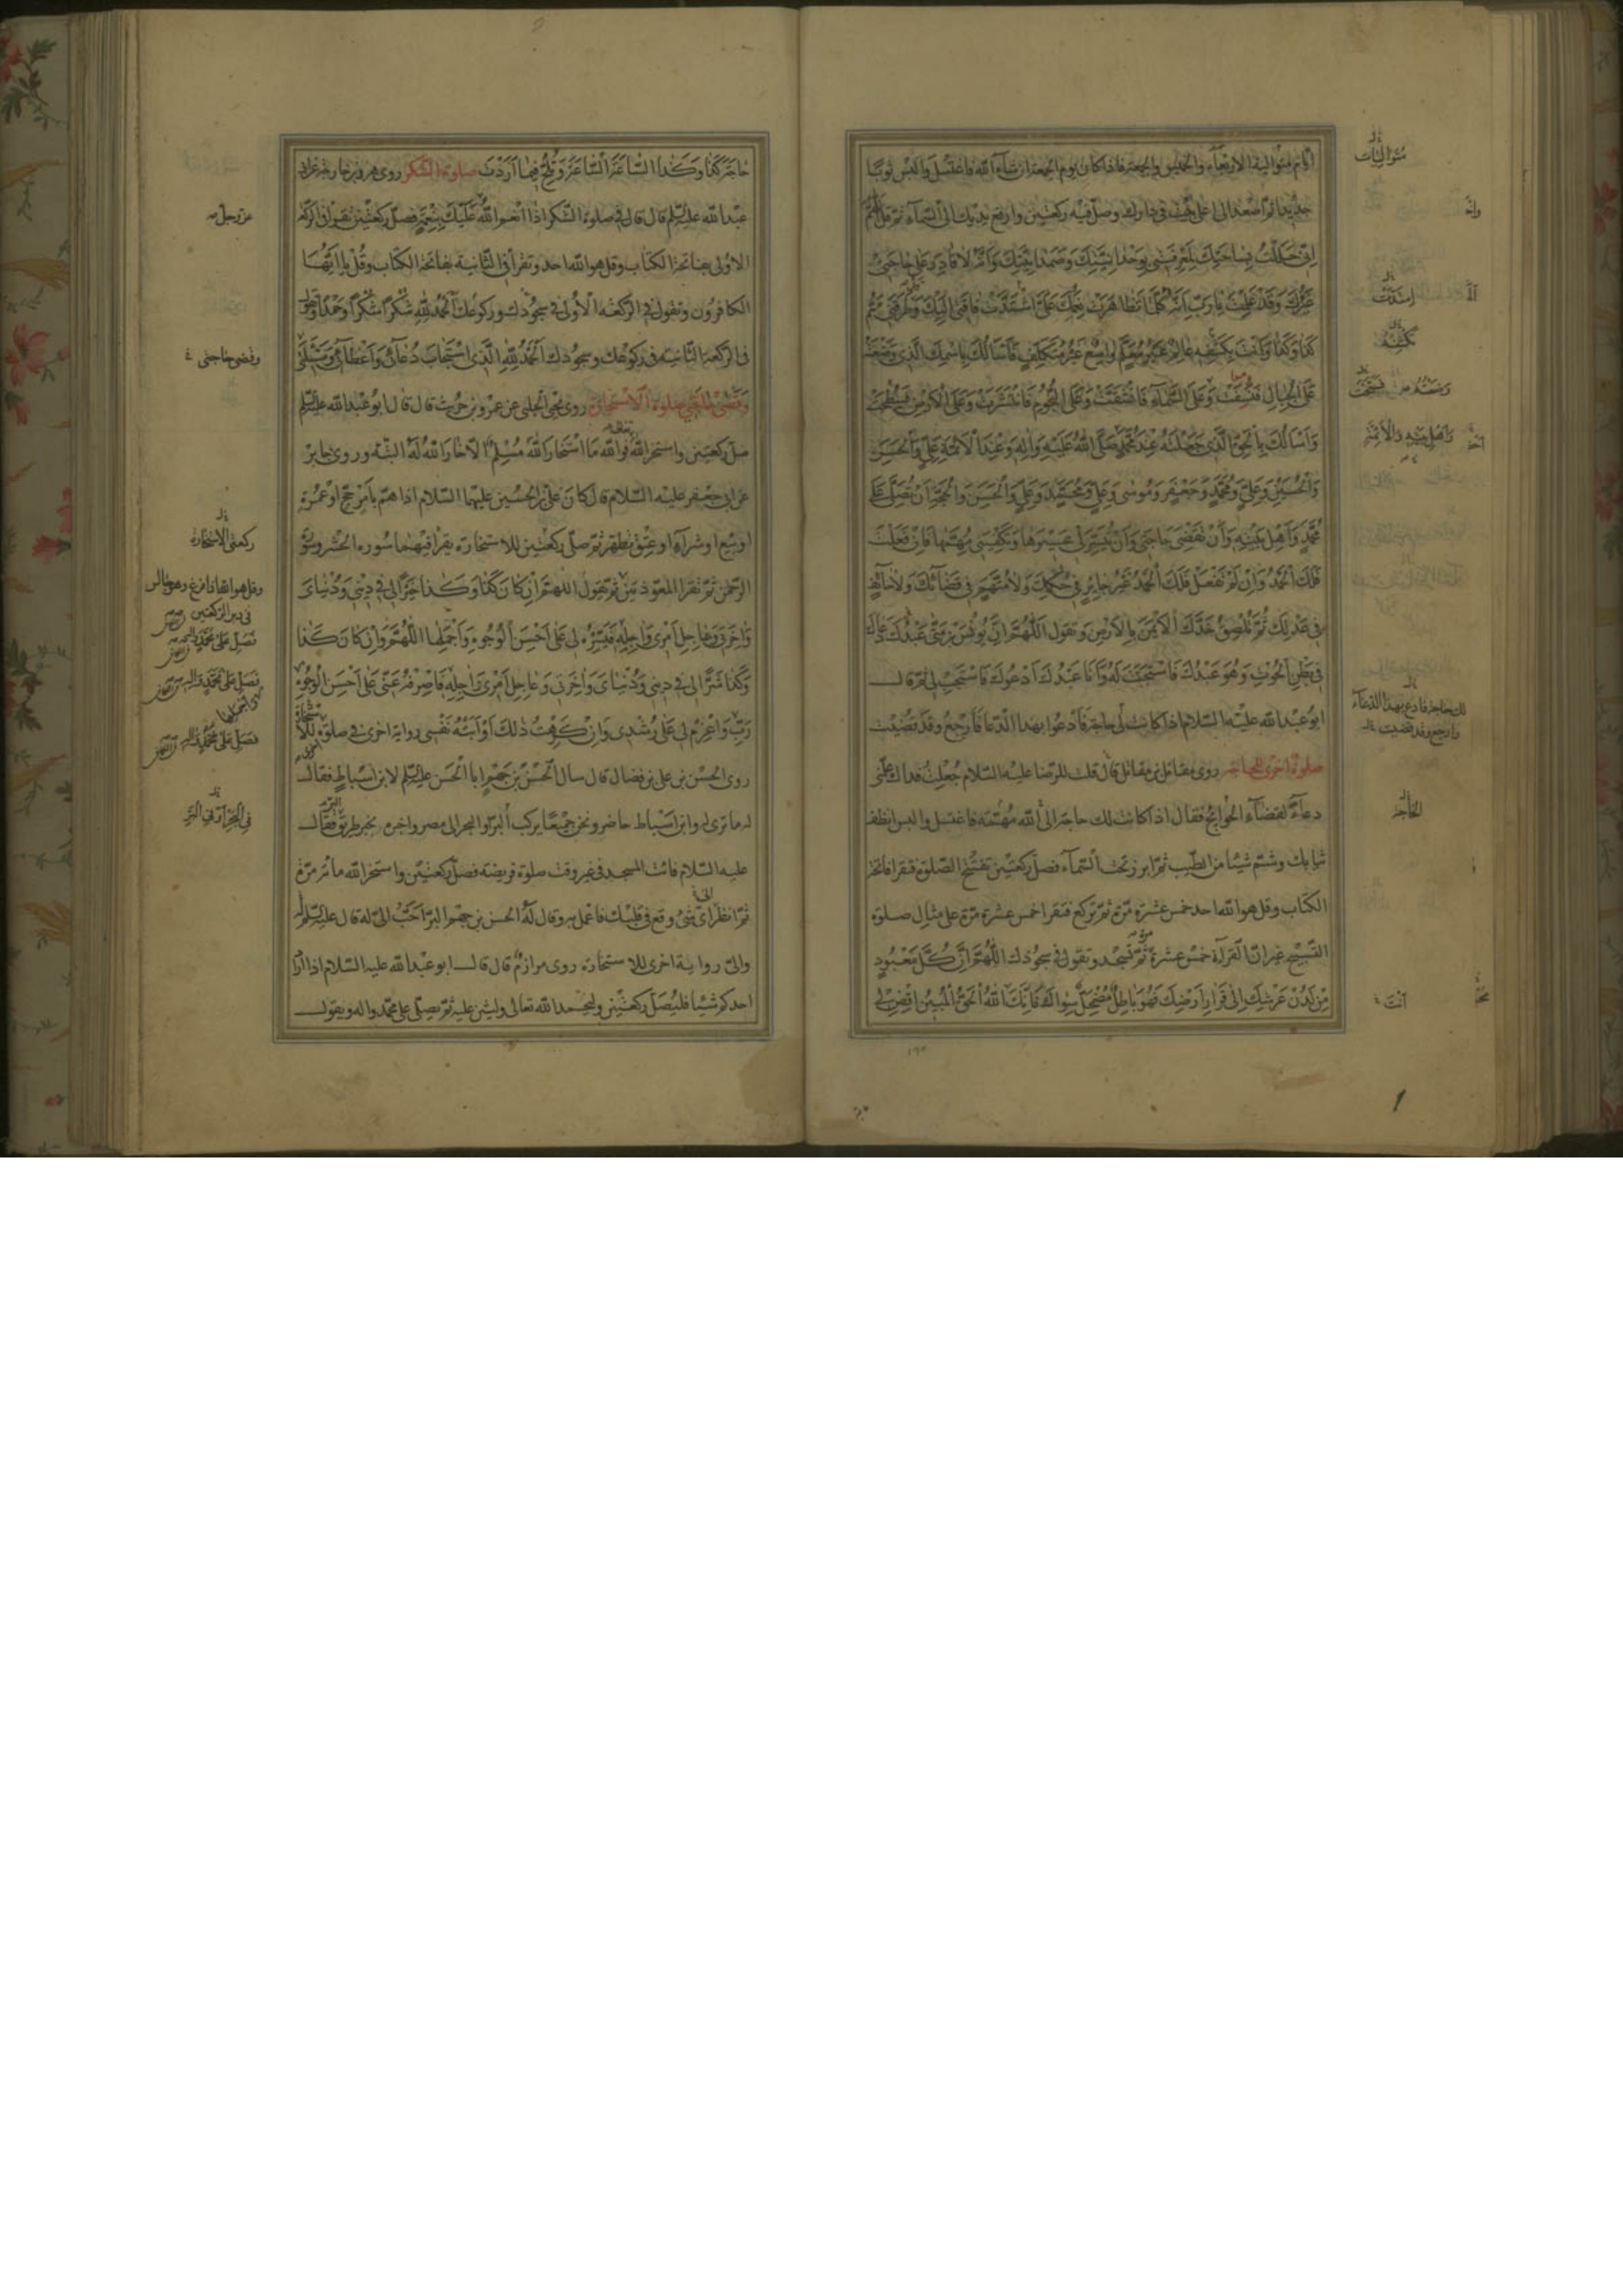 ايام متوالية الاربعاء والخميس والجمعة فاذا كان يوم الجمعة ان شاء الله فاغتسل والبس ثوبا
جديدا ثم اصعد الى اعلى بيت في دارك وصل فيه ركعتين وارفع يديك الى السماء ثم قل اللهم
اِنّي حَلَلْتُ بِسَاحَتِكَ لِمَعْرِفَتي بِوَحْدَانِيَّتِكَ وَصَمَدَانِيَّتِكَ وَاَنَّهُ لا قادِرَ عَلى حاجَتي
غَيْرُكَ وَقَدْ عَلِمْتُ يا رَبِّ اَنَّهُ كُلَّما تَظاهَرَتْ نِعَمُكَ عَلَيَّ اشْتَدَّتْ فاقَتي اِلَيْكَ وَطَرَقَني هَمُّ
كَذا وَكَذا وَاَنْتَ بِكَشْفِهِ عالِمٌ غَيْرُ مُعَلَّمٍ واسِعٌ غَيْرُ مُتَكَلِّفٍ فَاَسْأَلُكَ بِاسْمِكَ الَّذي وَضَعْتَهُ
عَلَى الْجِبالِ فَنُسِفَتْ وَعَلَى السَّمآءِ فَانْشَقَّتْ وَعَلَى النُّجُومِ فَانْتَثَرَتْ وَعَلَى الْاَرْضِ فَسُطِحَتْ
وَاَسْأَلُكَ بِالْحَقِّ الَّذي جَعَلْتَهُ عِنْدَ مُحَمَّدٍ صَلَّى اللهُ عَلَيْهِ وَالِهِ وَعِنْدَ الْاَئِمَّةِ عَلِيٍّ وَالْحَسَنِ
وَالْحُسَيْنِ وَعَلِيٍّ وَمُحَمَّدٍ وَجَعْفَرٍ وَمُوسى وَعَلِيٍّ وَمُحَمَّدٍ وَعَلِيٍّ وَالْحَسَنِ وَالْحُجَّةِ اَنْ تُصَلِّيَ عَلى
مُحَمَّدٍ وَاَهْلِ بَيْتِهِ وَاَنْ تَقْضِيَ حاجَتي وَاَنْ تُيَسِّرَ لي عَسيرَها وَتَكْفِيَني مُهِمَّتَها فَاِنْ فَعَلْتَ
فَلَكَ الْحَمْدُ وَاِنْ لَمْ تَفْعَلْ فَلَكَ الْحَمْدُ غَيْرُ جائِرٍ في حُكْمِكَ وَلا مُتَّهَمٍ في قَضائِكَ وَلا حائِفٍ
في عَدْلِكَ ثُمَّ تُلْصِقُ خَدَّكَ الْاَيْمَنَ بِالْاَرْضِ وَتقول اَللّهُمَّ اِنَّ يُونُسَ بْنَ مَتّى عَبْدُكَ دَعاكَ
في بَطْنِ الْحُوتِ وَهُوَ عَبْدُكَ فَاسْتَجَبْتَ لَهُ وَاَنَا عَبْدُكَ اَدْعُوكَ فَاسْتَجِبْ لي ثم قال
ابو عبد الله عليه السلام اذا كانت لي حاجة فأدعوا بهذا الدعا فأرجع وقد قضيت
صلوة اخرى للحاجة روى مقاتل بن مقاتل قال قلت للرضا عليه السلام جعلت فداك علمني
دعاء لقضاء الحوائج فقال اذا كانت لك حاجة الى الله مهمة فاغتسل والبس انظف
ثيابك وشم شيئا من الطيب ثم ابرز تحت السماء فصل ركعتين تفتتح الصلوة فتقرا فاتحة
الكتاب وقل هو الله احد خمس عشرة مرة ثم تركع فتقرا خمس عشرة مرة على مثال صلوة
التسبيح غير ان القراءة خمس عشرة مرة ثم تسجد وتقول في سجودك اَللّهُمَّ اِنَّ كُلَّ مَعْبُودٍ
مِنْ لَدُنْ عَرْشِكَ اِلى قَرارِ اَرْضِكَ فَهُوَ باطِلٌ مُضْمَحِلٌّ سِواكَ فَاِنَّكَ اللهُ الْحَقُّ الْمُبينُ اِقْضِ لي
متواليات
اشتدت
بكشفه
وضعته فسطحت
واهل بيته والائمة
لك حاجة فادع بهذا الدعاء
وارجع وقد قضيت
الحاجة
انت
حاجَةَ كَذا وَكَذا السّاعَةَ السّاعَةَ وَتُلِحُّ فيما اَرَدْتَ صلوة الشكر روى هرون بن خارجة عن ابي
عبد الله عليه السلم قال قال في صلوة الشكر اذا انعم الله عليك بنعمة فصل ركعتين تقرا في الركعة
الاولى بفاتحة الكتاب وقل هو الله احد وتقرأ في الثانية بفاتحة الكتاب وقل يا ايها
الكافرون وتقول في الركعة الاولى في سجودك وركوعك اَلْحَمْدُ لِلّهِ شُكْراً شُكْراً وَحَمْداً وتقول
في الركعة الثانية في ركوعك وسجودك اَلْحَمْدُ لِلّهِ الَّذي اسْتَجابَ دُعائي وَاَعْطاني مَسْأَلَتي
صلوة الاستخارة روى يحيى الحلبي عن عمرو بن حريث قال قال ابو عبد الله عليه السلم
صل ركعتين واستخر الله فوالله ما استخار الله مسلم الا خار الله له البتة وروى جابر
عن ابي جعفر عليه السلام قال كان علي بن الحسين عليهما السلام اذا هم بامر حج او عمرة
او بيع او شراء او عتق تطهر ثم صلى ركعتين للاستخارة يقرا فيهما سورة الحشر وسورة
الرحمن ثم تقرا المعوذتين ثم تقول اللهم ان كان كَذا وَكَذا خَيْراً لي في ديني وَدُنْيايَ
وَاخِرَتي وَعاجِلِ اَمْري وَاجِلِهِ فَيَسِّرْهُ لي عَلى اَحْسَنِ الْوُجُوهِ وَاَجْمَلِها اَللّهُمَّ وَاِنْ كانَ كَذا
وَكَذا شَرّاً لي في ديني وَدُنْيايَ وَاخِرَتي وَعاجِلِ اَمْري وَاجِلِهِ فَاصْرِفْهُ عَنّي عَلى اَحْسَنِ الْوُجُوهِ
رَبِّ وَاعْزِمْ لي عَلى رُشْدي وَاِنْ كَرِهَتْ ذلِكَ اَوْ اَبَتْهُ نَفْسي رواية اخرى في صلوة الاستخارة
روى الحسن بن علي بن فضال قال سال الحسن بن جهم ابا الحسن عليه السلم لابن اسباط فقال
له ما ترى له وابن اسباط حاضر ونحن جميعا يركب البر او البحر الى مصر واخبره بخبر طريق البر فقال
عليه السلام فائت المسجد في غير وقت صلوة فريضة فصل ركعتين واستخر الله مائة مرة
ثم انظر اي شئ وقع في قلبك فاعمل به وقال له الحسن بن جهم البر احب الي له قال عليه السلم
والي رواية اخرى للاستخارة روى مرازم قال قال ابو عبد الله عليه السلام اذا اراد
احدكم شيئا فليصل ركعتين وليحمد الله تعالى وليثن عليه ثم يصلي على محمد واله ويقول
عز وجل
وقضى حاجتي
ركعتي الاستخارة
وقل هو الله اذا فرغ وهو جالس
في دبر الركعتين
في البحر او في البر